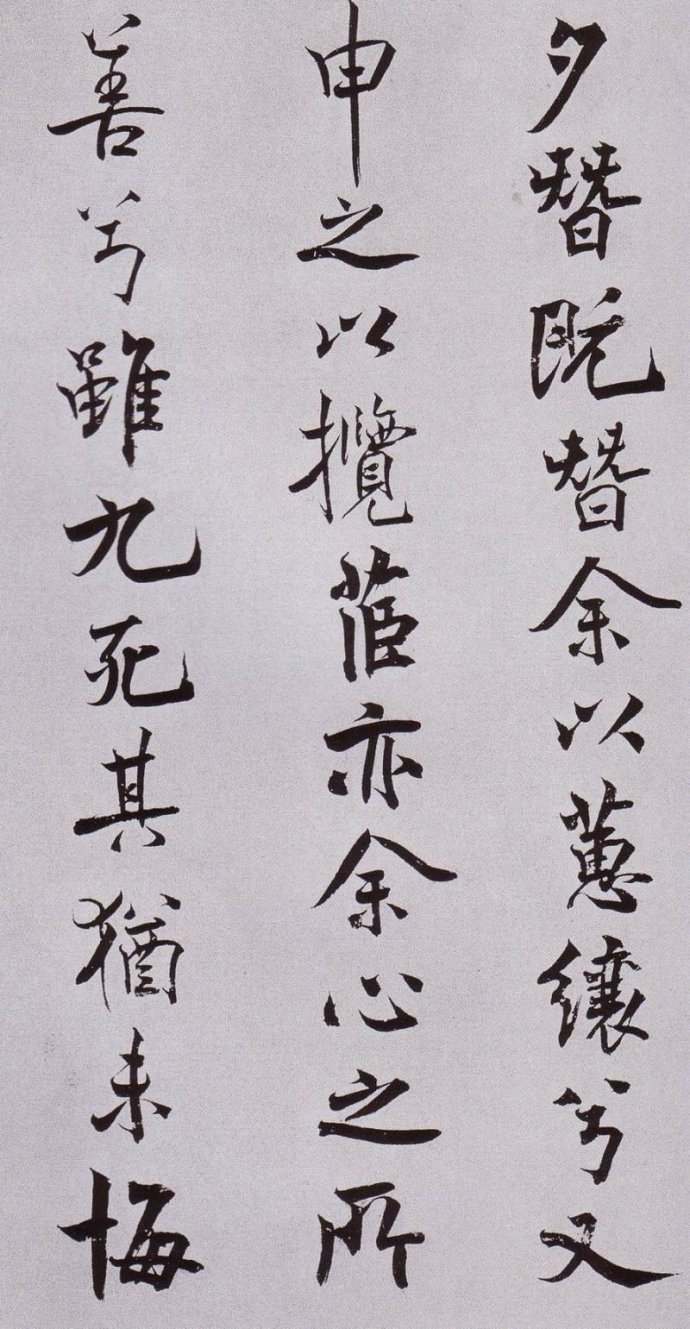 夕替既替余以蕙纕兮又
申之以攬茝亦余心之所
善兮雖九死其猶未悔